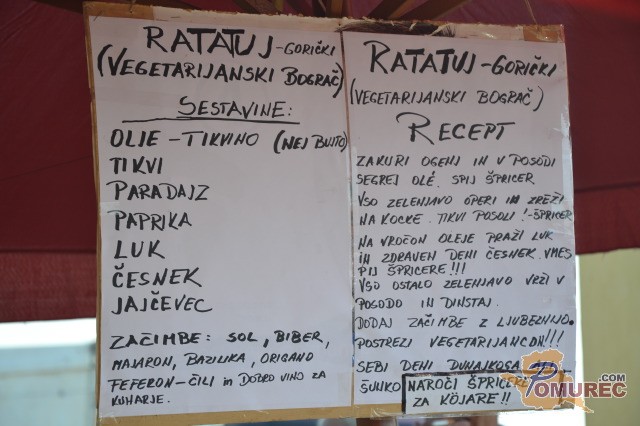 RATATUJ - GORIČKI
(VEGETARIJANSKI BOGRAČ)
SESTAVINE:
OLJE - TIKVINO (NEJ BUJTO)
TIKVI
PARADAJZ
PAPRIKA
LUK
ČESNEK
JAJČEVEC
ZAČIMBE: SOL, BIBER,
MAJARON, BAZILIKA, ORIGANO
FEFERON - ČILI in DOBRO VINO ZA
KUHARJE.
RATATUJ - GORIČKI
(VEGETARIJANSKI BOGRAČ)
RECEPT
ZAKURI OGENJ IN V POSODI
SEGREJ OLÉ. SPIJ ŠPRICER
VSO ZELENJAVO OPERI IN ZREŽI
NA KOCKE. TIKVI POSOLI! - ŠPRICER
NA VROČON OLEJE PRAŽI LUK
IN ZDRAVEN DENI ČESNEK. VMES
PIJ ŠPRICERE!!!
VSO OSTALO ZELENJAVO VRŽI V
POSODO IN DINSTAJ.
DODAJ ZAČIMBE Z LJUBEZNIJO.
POSTREŽI VEGETARIJANCON!!!
SEBI DENI DUNAJKOSA
NAROČI ŠPRICERE
ZA KÖJARE!!
POMUREC.COM